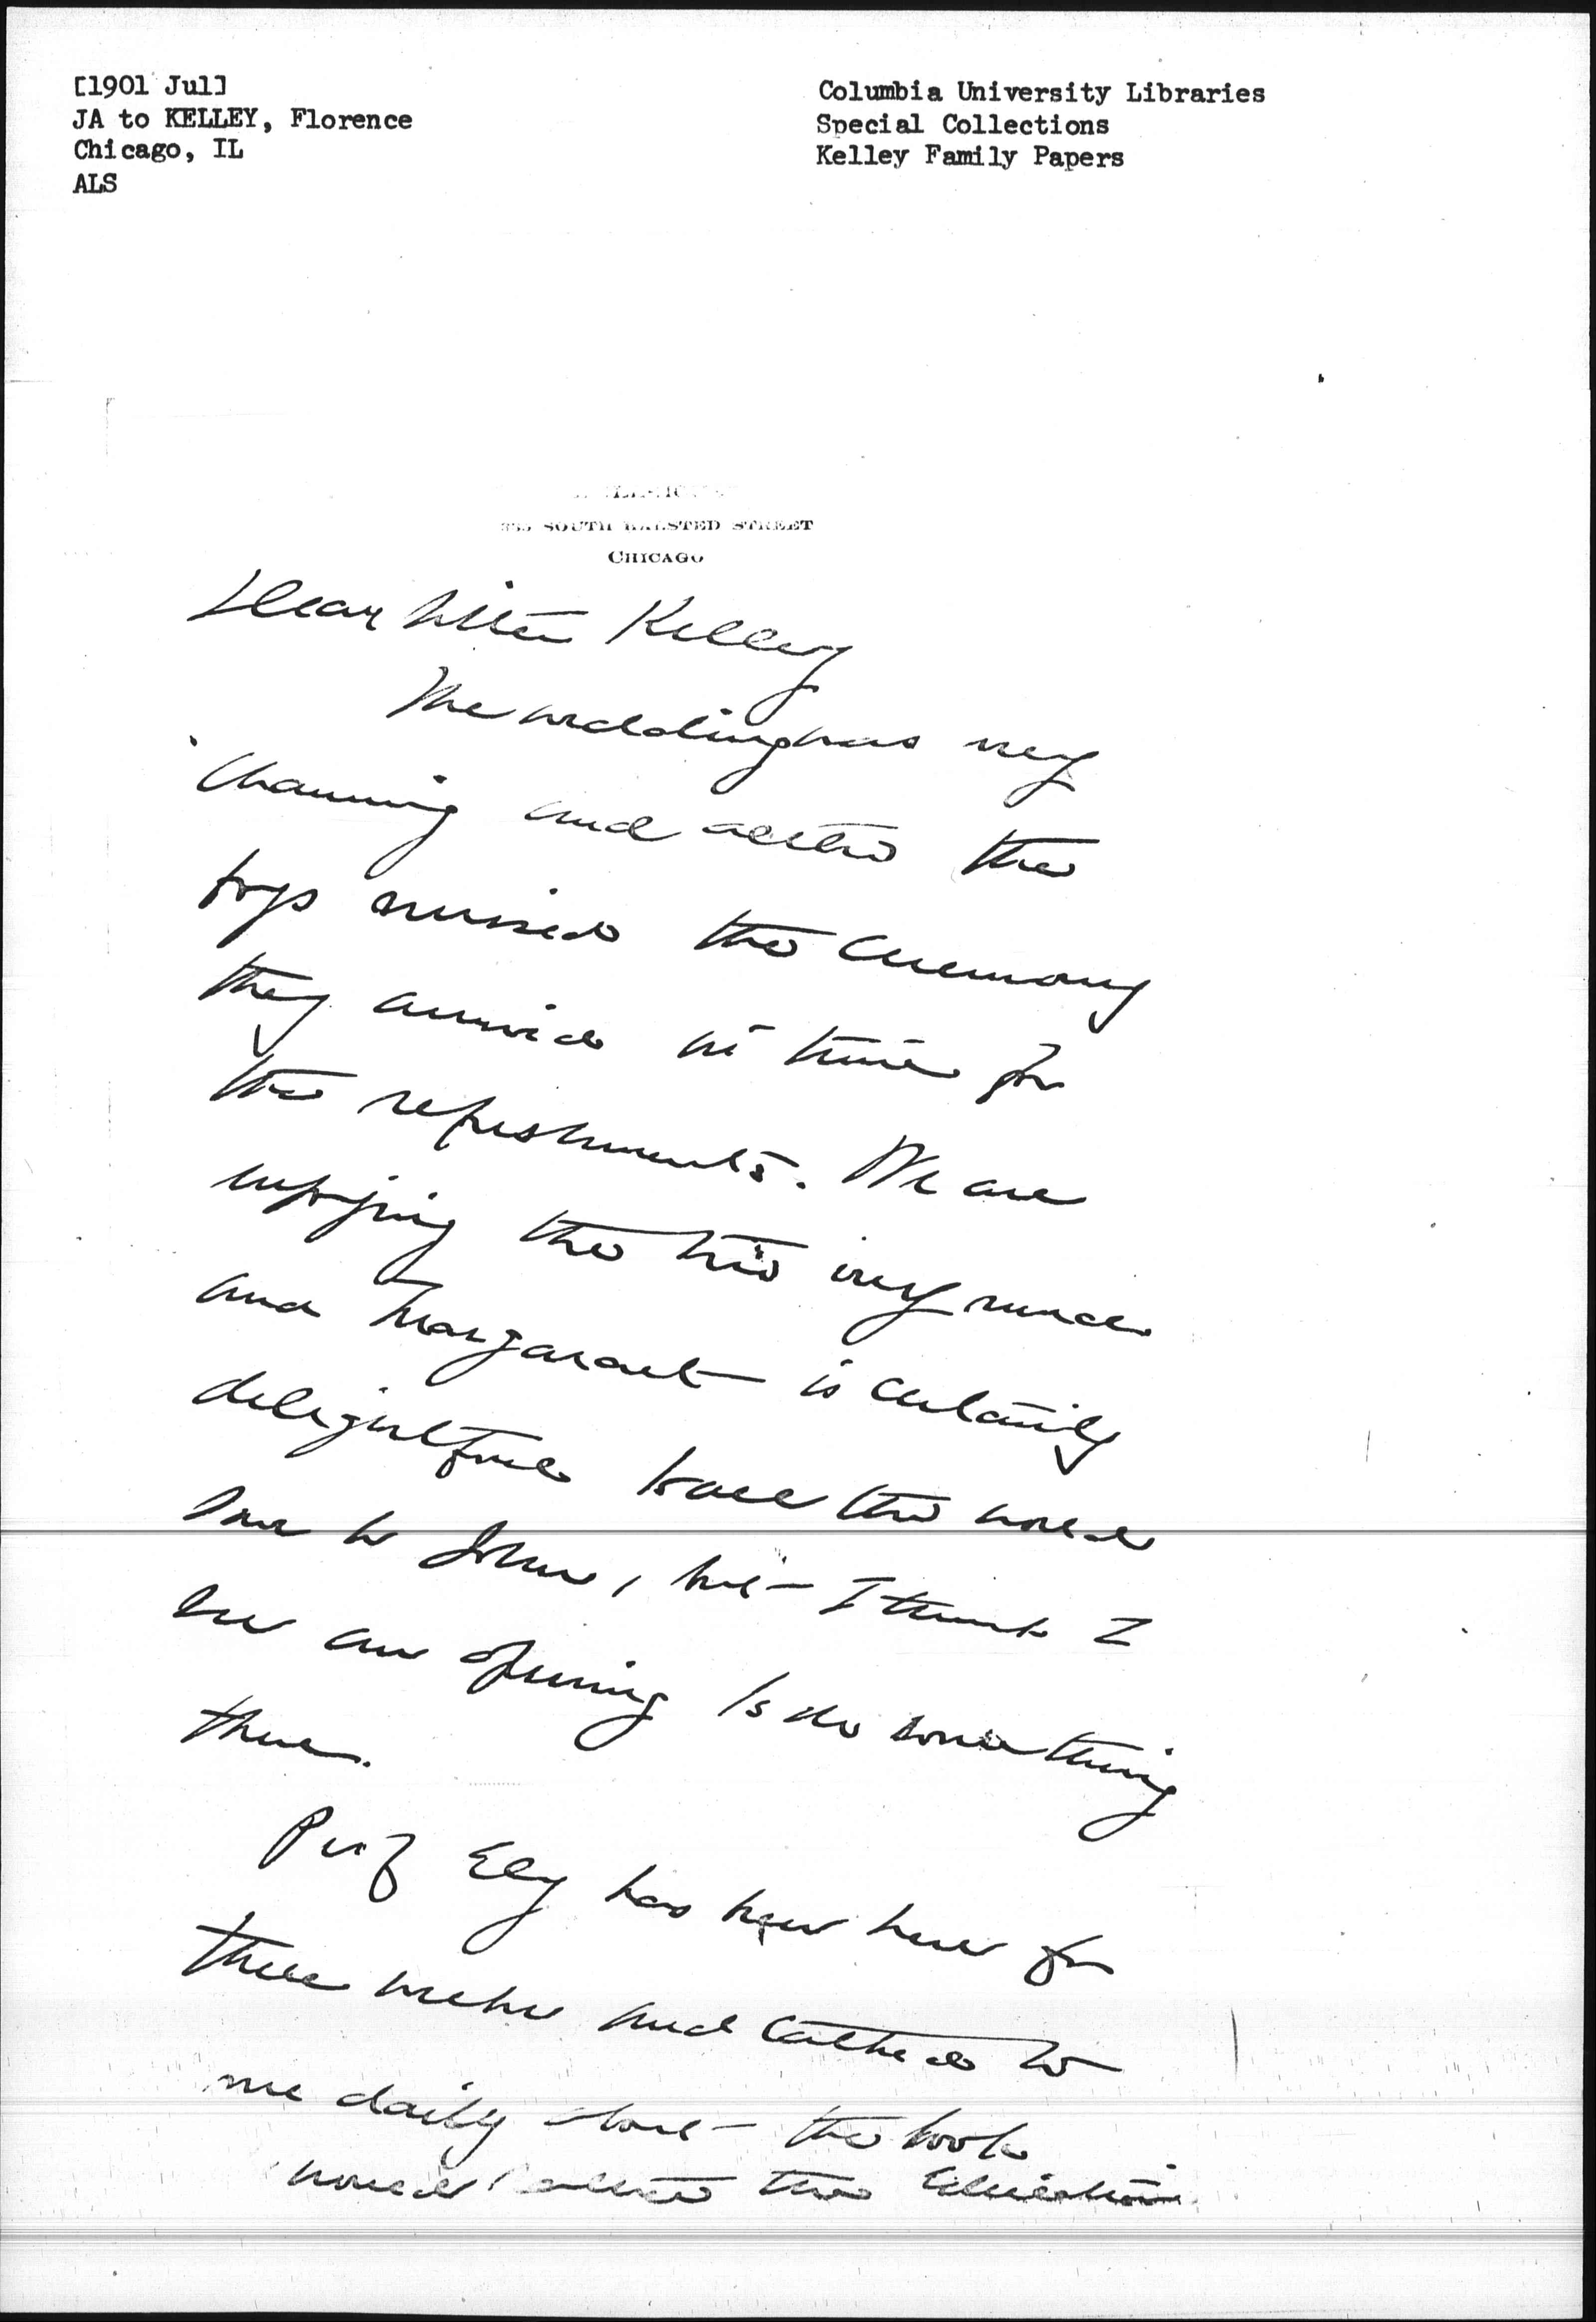 [1901 Jul]
JA to KELLEY, Florence
Chicago, IL
ALS
Columbia University Libraries
Special Collections
Kelley Family Papers
335 SOUTH HALSTED STREET
CHICAGO
Dear Sister Kelley
The wedding was very
charming and altho the
boys missed the ceremony
they arrived in time for
the refreshments. We are
enjoying the trio very much
and Margaret is certainly
delightful to all the world
save to John, but I think I
see an opening to do something
there.
Prof Ely has been here for
three weeks and talked to
me daily about the book